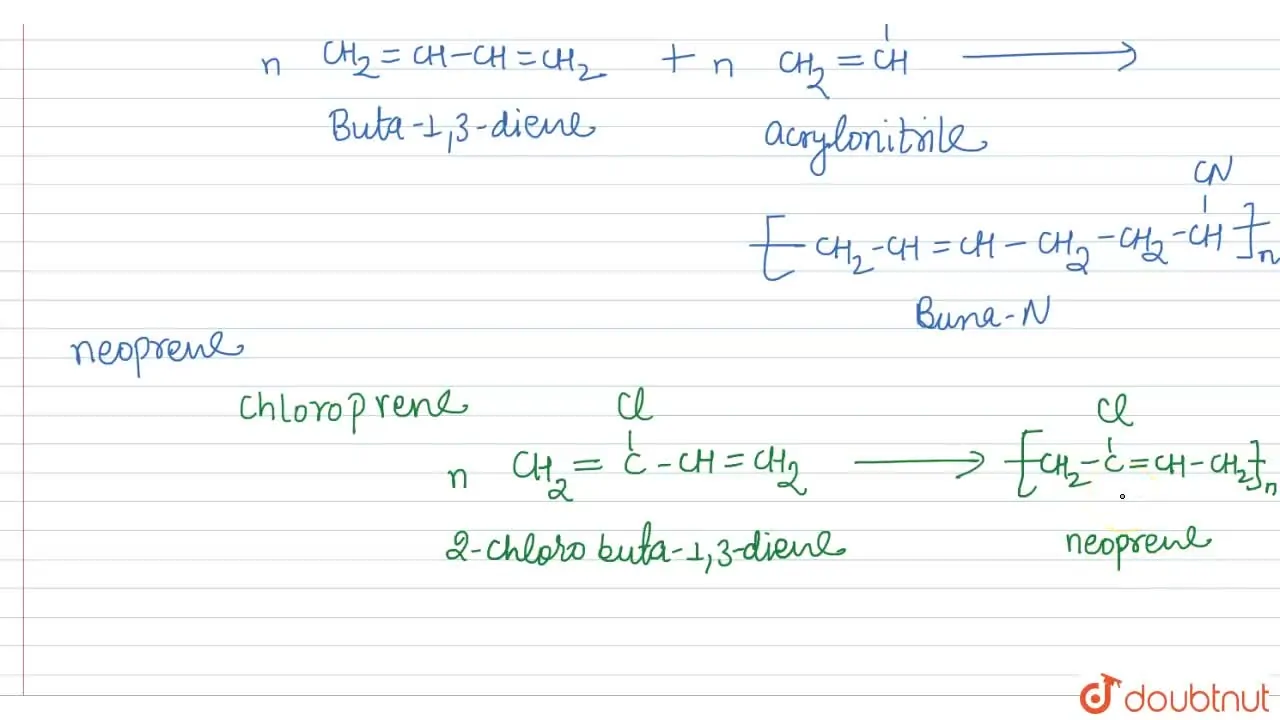 n CH2=CH-CH=CH2 + n CH2=CH ⟶
Buta-1,3-diene acrylonitrile
CN
[CH2-CH=CH-CH2-CH2-CH]n
Buna-N
neoprene
chloroprene Cl Cl
n CH2=C-CH=CH2 ⟶ [CH2-C=CH-CH2]n
2-chloro buta-1,3-diene neoprene
doubtnut